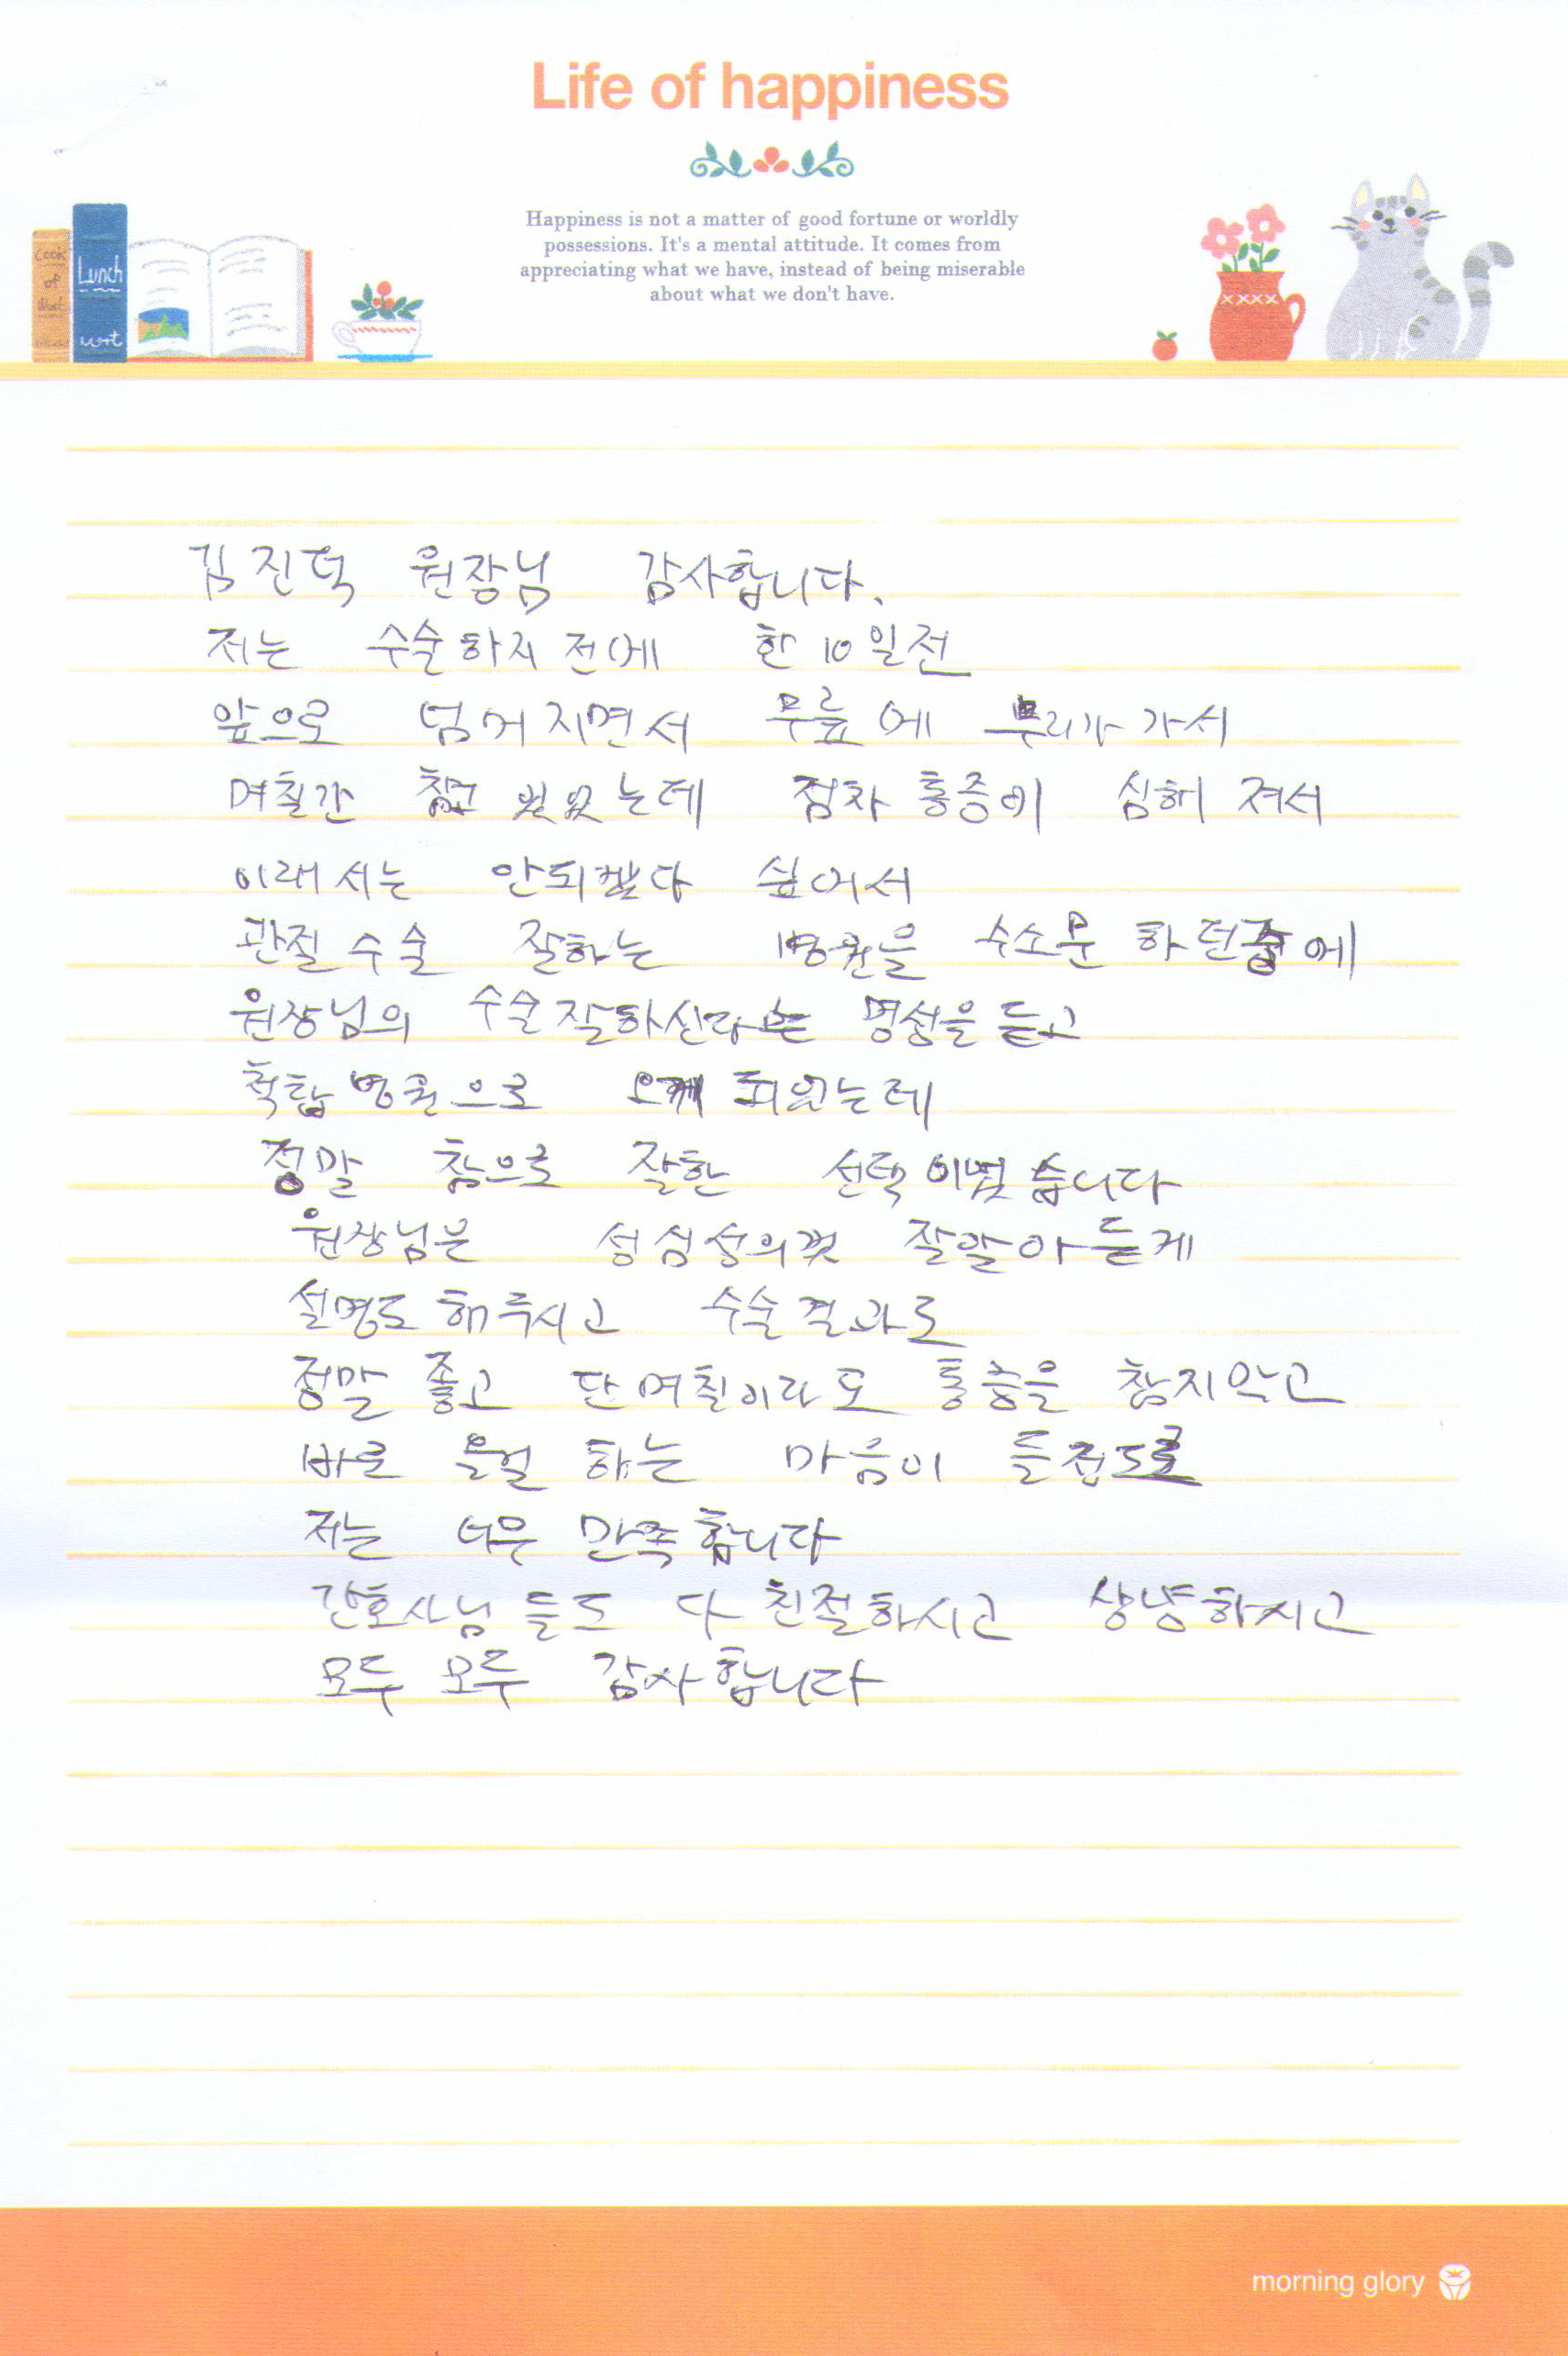 Life of happiness
Happiness is not a matter of good fortune or worldly
possessions. It's a mental attitude. It comes from
appreciating what we have, instead of being miserable
about what we don't have.
cook
of
Lunch
김진덕 원장님 감사합니다.
저는 수술하지 전에 한 10일전
앞으로 넘어지면서 무릎에 무리가 가서
며칠간 참고 있었는데 점차 통증이 심해 져서
이래서는 안되겠다 싶어서
관절수술 잘하는 병원을 수소문 하던중에
원장님의 수술잘하신다는 명성을 듣고
척탑병원으로 오께 되었는데
정말 참으로 잘한 선택이였습니다
원장님은 성심성의껏 잘알아듣게
설명도 해주시고 수술결과도
정말 좋고 단 며칠이라도 통증을 참지않고
바로 올걸 하는 마음이 들정도로
저는 너무 만족합니다
간호사님들도 다 친절하시고 상냥하시고
모두모두 감사합니다
morning glory